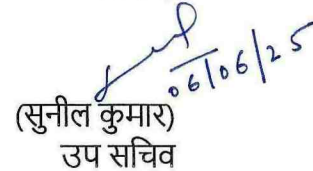 06/06/25
(सुनील कुमार)
उप सचिव